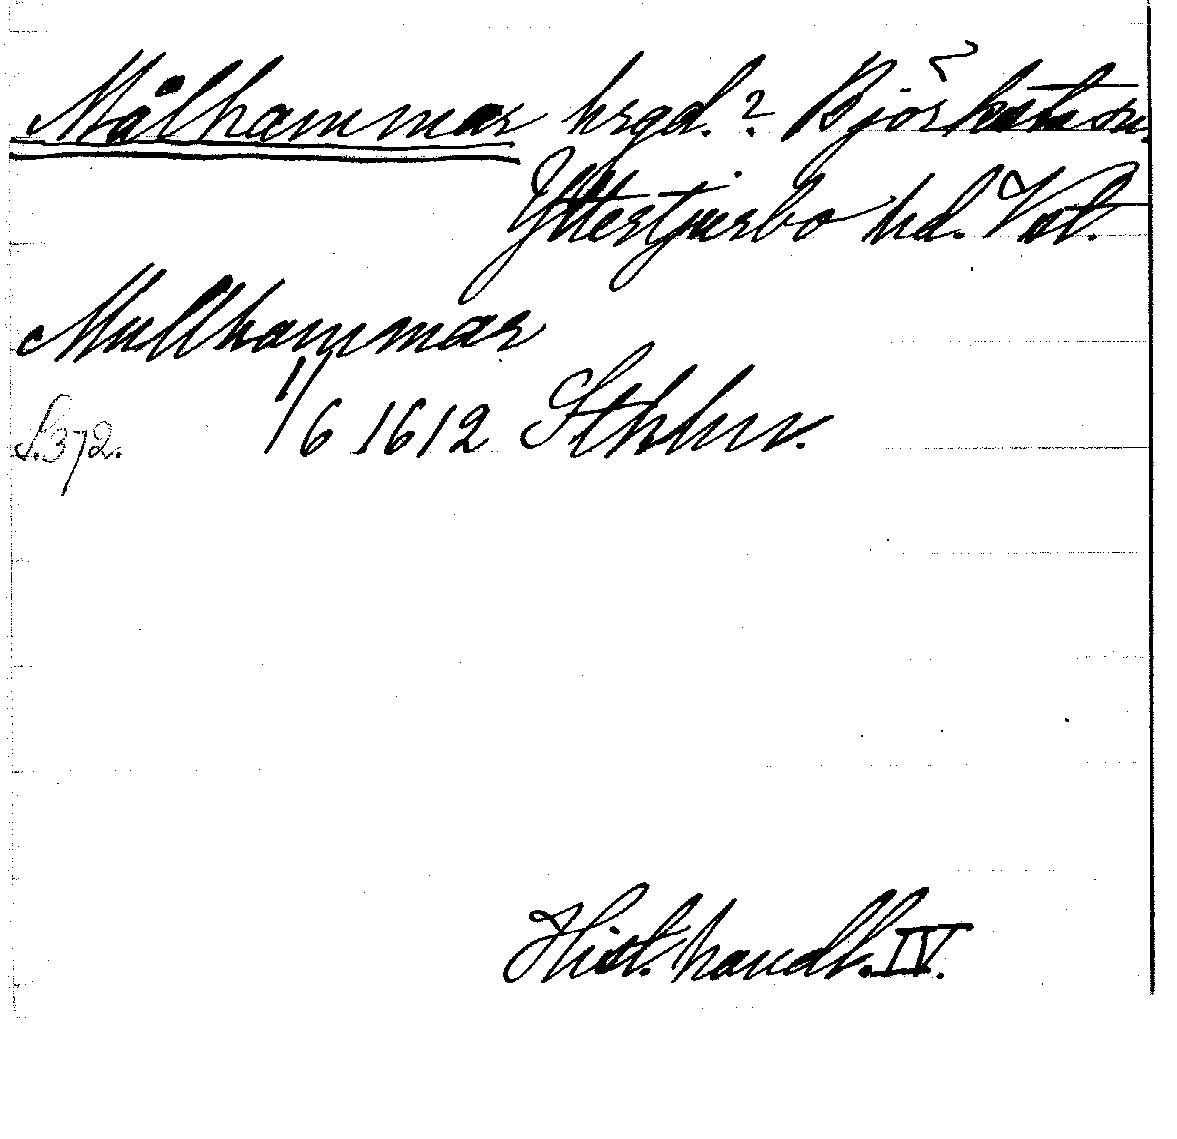 Målhammar hrgd.? Björksta sn
Yttertjurbo hd. Vstl.
Mullhammar
S.372. 1/6 1612 Sthlm.
Hist. handl. IV.